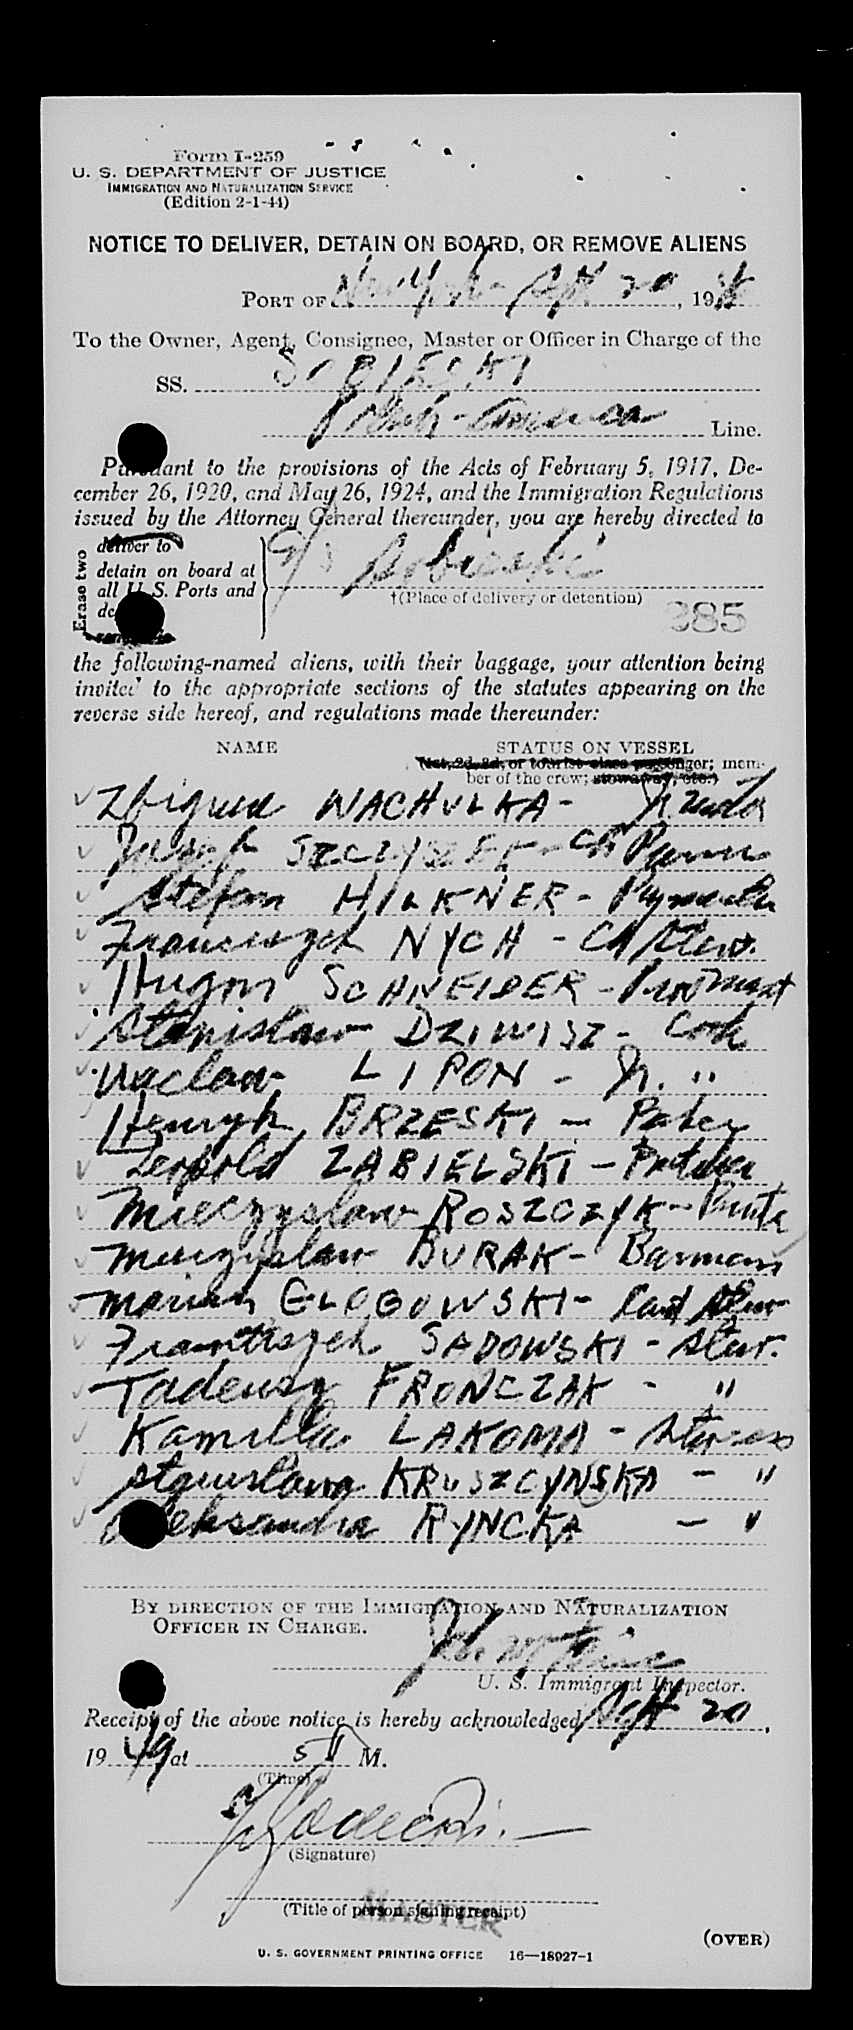 Form I-259
U. S. DEPARTMENT OF JUSTICE
IMMIGRATION AND NATURALIZATION SERVICE
(Edition 2-1-44)
NOTICE TO DELIVER, DETAIN ON BOARD, OR REMOVE ALIENS
PORT OF New York Sept 20, 19
To the Owner, Agent, Consignee, Master or Officer in Charge of the
SS. SOBIESKI
Polish-America Line.
Pursuant to the provisions of the Acts of February 5, 1917, De-
cember 26, 1920, and May 26, 1924, and the Immigration Regulations
issued by the Attorney General thereunder, you are hereby directed to
Erase two
deliver to
detain on board at
all U. S. Ports and
S/S Sobieski
†(Place of delivery or detention)
385
the following-named aliens, with their baggage, your attention being
invited to the appropriate sections of the statutes appearing on the
reverse side hereof, and regulations made thereunder:
NAME STATUS ON VESSEL
(1st, 2d, 3d, or tourist class passenger; mem-
ber of the crew; stowaway, etc.)
Zbigniew WACHULKA -
Joseph SZCZYSZEK - Ch
Stefan HILKNER -
Franciszek NYCH - Ch Stew.
Hugon SCHNEIDER -
Stanislaw DZIWISZ - Cook
Waclaw LIPON - Jr. "
Henryk BRZESKI - Baker
Leopold ZABIELSKI - Butcher
Mieczyslaw ROSZCZYK -
Mieczyslaw BURAK - Barman
Marian GLOGOWSKI - Stew
Frantiszek SADOWSKI - Stew.
Tadeusz FRONCZAK - "
Kamilla LAKOMA - Stewess
Stanislawa KRUSZCYNSKA - "
Aleksandra RYNCKA - "
BY DIRECTION OF THE IMMIGRATION AND NATURALIZATION
OFFICER IN CHARGE.
U. S. Immigrant Inspector.
Receipt of the above notice is hereby acknowledged Sept 20,
19 49 at 5 M.
(Time)
(Signature)
MASTER
(Title of person signing receipt)
(OVER)
U. S. GOVERNMENT PRINTING OFFICE 16—18927-1